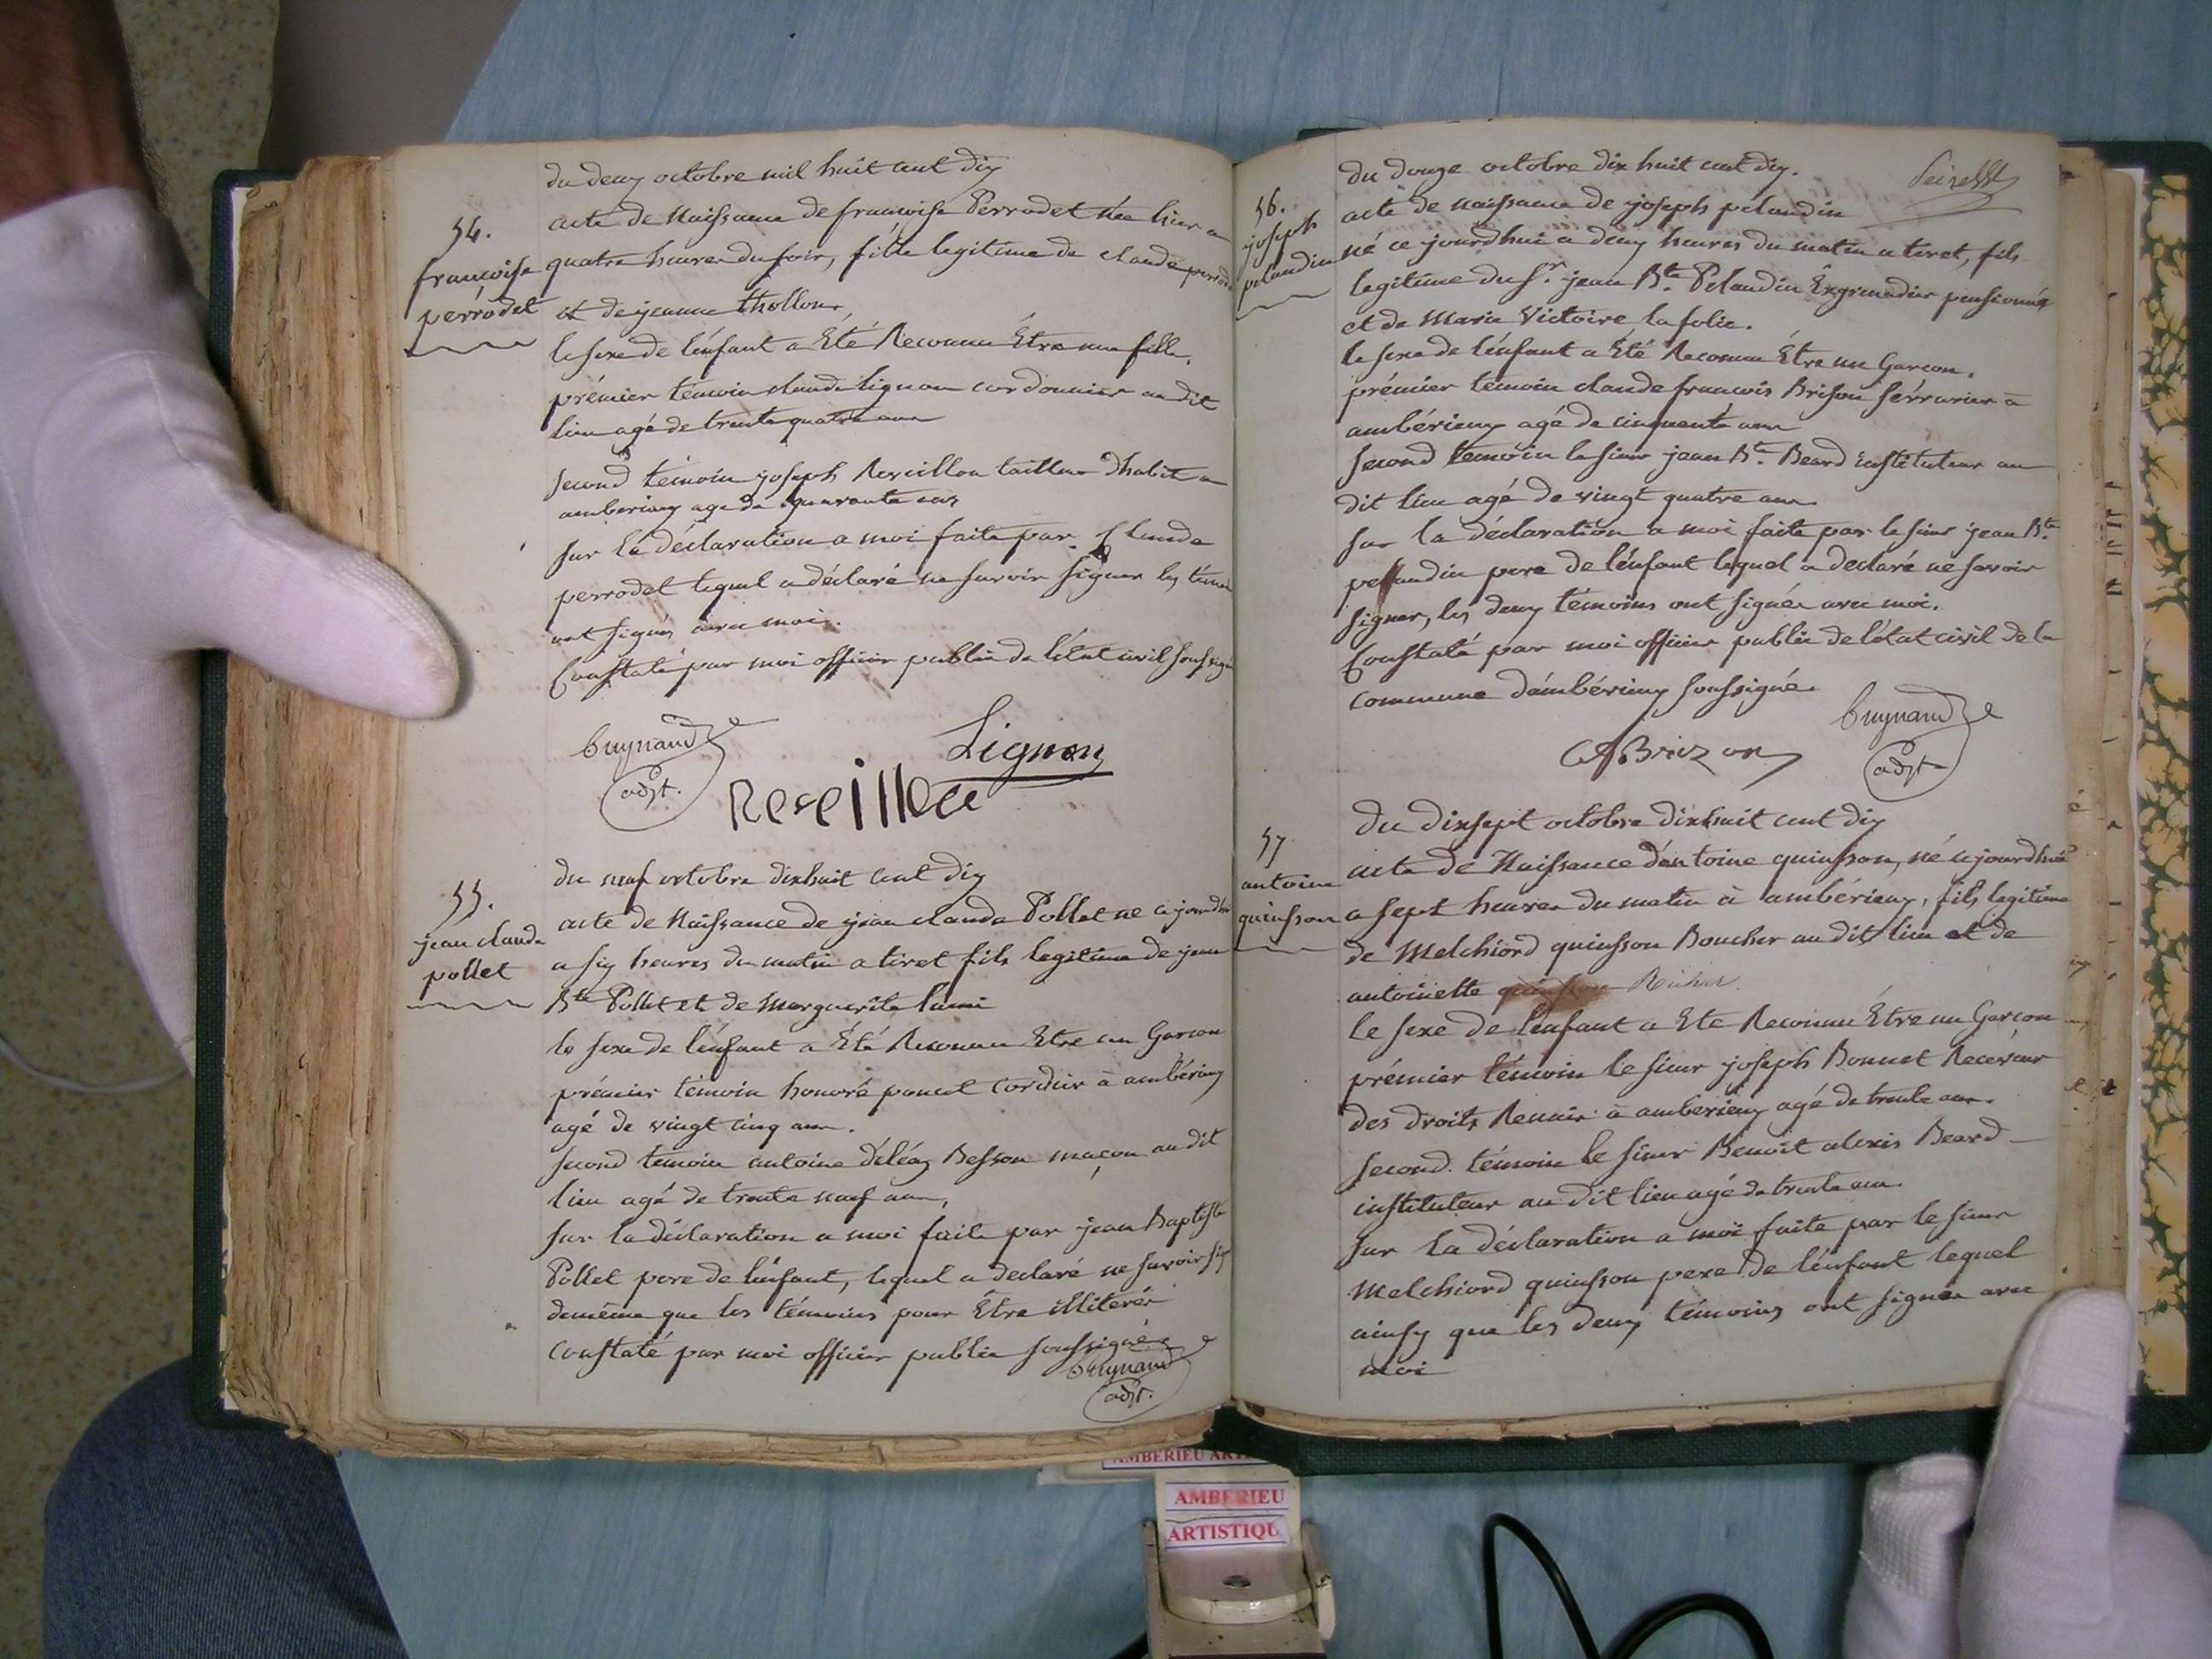 du deux octobre mil huit cent dix
54.
françoise
perrodet
acte de Naissance de françoise Perrodet née hier a
quatre heures du soir, fille legitime de claude perrodet
et de jeanne thollon.
le sexe de l'énfant a Été Reconnu Étre une fille.
prémier témoin claude Lignon cordonnier au dit
lieu agé de trente quatre ans
second témoin joseph Reveillon tailleur d'habit a
amberieux age de quarante ans
sur la déclaration a moi faite par Claude
perrodet lequel a déclaré ne savoir signer les témoins
ont signés avec moi.
Constaté par moi officier public de l'état civil soussigné
Guynand
adjt.
Lignon
Reveillon
55.
jean claude
pollet
du neuf octobre dixhuit cent dix
acte de Naissance de jean claude Pollet né ce jourdhui
a six heures du matin a tiret fils legitime de jean
Bte Pollet et de Marguerite
le sexe de l'énfant a Été Reconnu Etre un Garcon
prémier témoin honoré poncet cordier à ambérieux
agé de vingt cinq ans.
second témoin antoine déléaz Besson maçon au dit
lieu agé de trente neuf ans,
sur la déclaration a moi faite par jean Baptiste
Pollet pere de l'énfant, lequel a declaré ne savoir sig
demême que les témoins pour Étre illiterés
constaté par moi officier public soussigné
Guynand
adjt.
56.
joseph
pelandin
du douze octobre dix huit cent dix.
acte de naissance de joseph pelandin
né ce jourdhui a deux heures du matin a tiret, fils
legitime du Sr. jean Bte. Pelandin Exgrenadier pensionné
et de Marie Victoire la folie.
le sexe de l'énfant a Été Reconnu Étre un Garcon.
prémier témoin claude francois Brison sérrurier à
ambérieux agé de cinquante ans
second témoin le sieur jean Bte. Beard instituteur au
dit lieu agé de vingt quatre ans
sur la déclaration a moi faite par le sieur jean Bte.
pellandin pere de l'énfant lequel a declaré ne savoir
signer, les deux témoins ont signés avec moi.
Constaté par moi officier public de l'état civil de la
commune d'ambérieux soussigné.
Guynand
adjt
CfBrizon
57
antoine
quinsson
du dixsept octobre dixhuit cent dix
acte de Naissance d'antoine quinsson, né ce jourdhui
a sept heures du matin à ambérieux, fils legitime
de Melchiord quinsson Boucher au dit lieu et de
antoinette
le sexe de l'énfant a Eté Reconnu Étre un Garcon
prémier témoin le sieur joseph Bonnet Recéveur
des droits Reunis à amberieux agé de trente ans.
second témoin le sieur Benoit alexis Beard
instituteur au dit lieu agé de trente ans.
sur la déclaration a moi faite par le sieur
Melchiord quinsson pere de l'énfant lequel
ainsy que les deux témoins ont signés avec
moi
AMBERIEU
AMBERIEU
ARTISTIQU